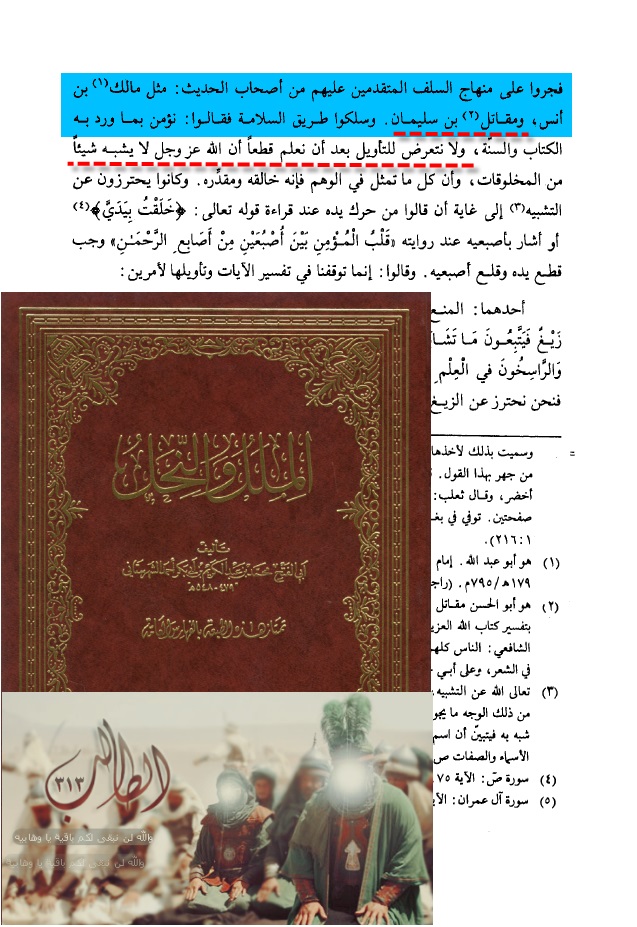 فجروا على منهاج السلف المتقدمين عليهم من أصحاب الحديث: مثل مالك(١) بن
أنس، ومقاتل(٢) بن سليمان. وسلكوا طريق السلامة فقالوا: نؤمن بما ورد به
الكتاب والسنّة، ولا نتعرض للتأويل بعد أن نعلم قطعاً أن الله عز وجل لا يشبه شيئاً
من المخلوقات، وأن كل ما تمثل في الوهم فإنه خالقه ومقدِّره. وكانوا يحترزون عن
التشبيه(٣) إلى غاية أن قالوا من حرك يده عند قراءة قوله تعالى: ﴿خَلَقْتُ بِيَدَيَّ﴾(٤)
أو أشار بأصبعيه عند روايته «قَلْبُ المُؤْمِنِ بَيْنَ أُصْبُعَيْنِ مِنْ أَصَابِعِ الرَّحْمَـٰنِ» وجب
قطع يده وقلع أصبعيه. وقالوا: إنما توقفنا في تفسير الآيات وتأويلها لأمرين:
أحدهما: المنع
زَيْغٌ فَيَتَّبِعُونَ مَا تَشَا
وَالرَّاسِخُونَ في الْعِلْمِ
فنحن نحترز عن الزيغ
= وسميت بذلك لأخذها
من جهر بهذا القول.
أخضر، وقال ثعلب:
صفحتين. توفي في بغ
٢١٦:١).
(١) هو أبو عبد الله. إمام
١٧٩هـ/٧٩٥م. (راج
(٢) هو أبو الحسن مقاتل
بتفسير كتاب الله العزي
الشافعي: الناس كلهـ
في الشعر، وعلى أبـي
(٣) تعالى الله عن التشبيه،
من ذلك الوجه ما يجو
شبه به فيتبيّن أن اسم
الأسماء والصفات ص
(٤) سورة صّ: الآية ٧٥
(٥) سورة آل عمران: الآيـ
الملل والنحل
تأليف
أبي الفتح محمد بن عبد الكريم بن أبي بكر أحمد الشهرستاني
٤٧٩ - ٥٤٨ هـ
تمتاز هذه الطبعة بالفهارس
الطالب
٣١٣
والله لن نبقي لكم باقية يا وهابية
والله لن نبقي لكم باقية يا وهابية